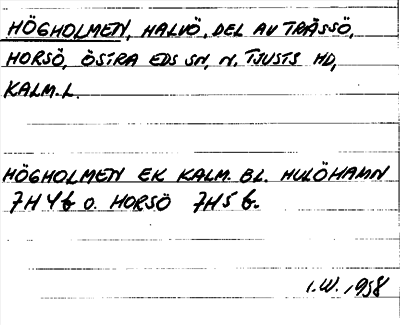 HÖGHOLMEN, HALVÖ, DEL AV TRÄSSÖ,
HORSÖ, ÖSTRA EDS SN, N. TJUSTS HD,
KALM. L.
HÖGHOLMEN EK KALM. BL. HULÖHAMN
7H 4 b O. HORSÖ 7H 5 b.
I.W. 1958